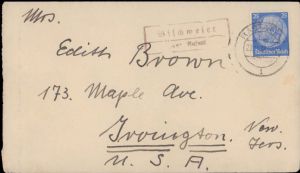 Mrs.
Bischweier
Edith Brown
173. Maple Ave.
Irvington New
Jers.
U. S. A.
25
Deutsches Reich